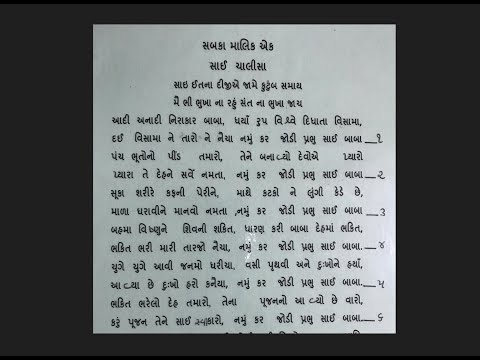 સબકા માલિક એક
સાઈ ચાલીસા
સાઇ ઈતના દીજીએ જામે કુટુંબ સમાય
મૈ ભી ભુખા ના રહું સંત ના ભુખા જાય
આદી અનાદી નિરાકાર બાબા, ધર્યાં રુપ વિશ્વે દિધાતા વિસામા,
દઈ વિસામા ને તારો ને નૈયા, નમું કર જોડી પ્રભુ સાઈ બાબા __૧
પંચ ભુતોનો પીંડ તમારો, તેને બનાવ્યો દેવોએ પ્યારો
પ્યારા તે દેહને સર્વે નમતા, નમું કર જોડી પ્રભુ સાઈ બાબા __૨
સૂકા શરીરે કફની પેરીને, માથે કટકો ને લુંગી કેડે છે,
માળા ધરાવીને માનવો નમતા ,નમું કર જોડી પ્રભુ સાઈ બાબા __૩
બહમા વિષ્ણુને શિવની શકિત, ધારણ કરી બાબા દેહમાં ભકિત,
ભકિત ભરી મારી તારજો નૈયા, નમું કર જોડી પ્રભુ સાઈ બાબા.__૪
યુગે યુગે આવી જનમો ધરીયા, વસી પૃથવી અને દુઃખોને હર્યાં,
આવ્યા છે દુઃખો હરો કનૈયા, નમું કર જોડી પ્રભુ સાઈ બાબા __૫
ભકિત ભરેલો દેહ તમારો, તેના પૂજનનો આવ્યો છે વારો,
કરું પૂજન તેને સાઈ સ્વાકારો, નમું કર જોડી પ્રભુ સાઈ બાબા __૬